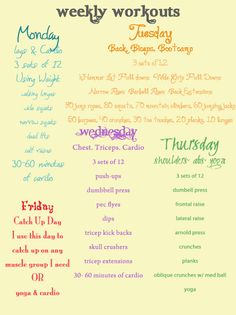 weekly workouts
Monday
legs & Cardio
3 sets of 12
Using Weight
walking lunges
wide squats
narrow squats
dead lifts
calf raises
30-60 minutes
of cardio
Tuesday
Back, Biceps, Bootcamp
3 sets of 12
Hammer Lat Pull downs Wide Grip Pull Downs
Narrow Rows Barbell Rows Back Extensions
50 jump ropes, 50 squats, 50 mountain climbers, 50 jumping jacks
50 burpees, 50 crunches, 50 tire touches, 50 planks, 50 lunges
wednesday
Chest, Triceps, Cardio
3 sets of 12
push-ups
dumbbell press
pec flyes
dips
tricep kick backs
skull crushers
tricep extensions
30- 60 minutes of cardio
Thursday
shoulders- abs- yoga
3 sets of 12
dumbell press
frontal raise
lateral raise
arnold press
crunches
planks
oblique crunches w/ med ball
yoga
Friday
Catch Up Day
I use this day to
catch up on any
muscle group I need
OR
yoga & cardio